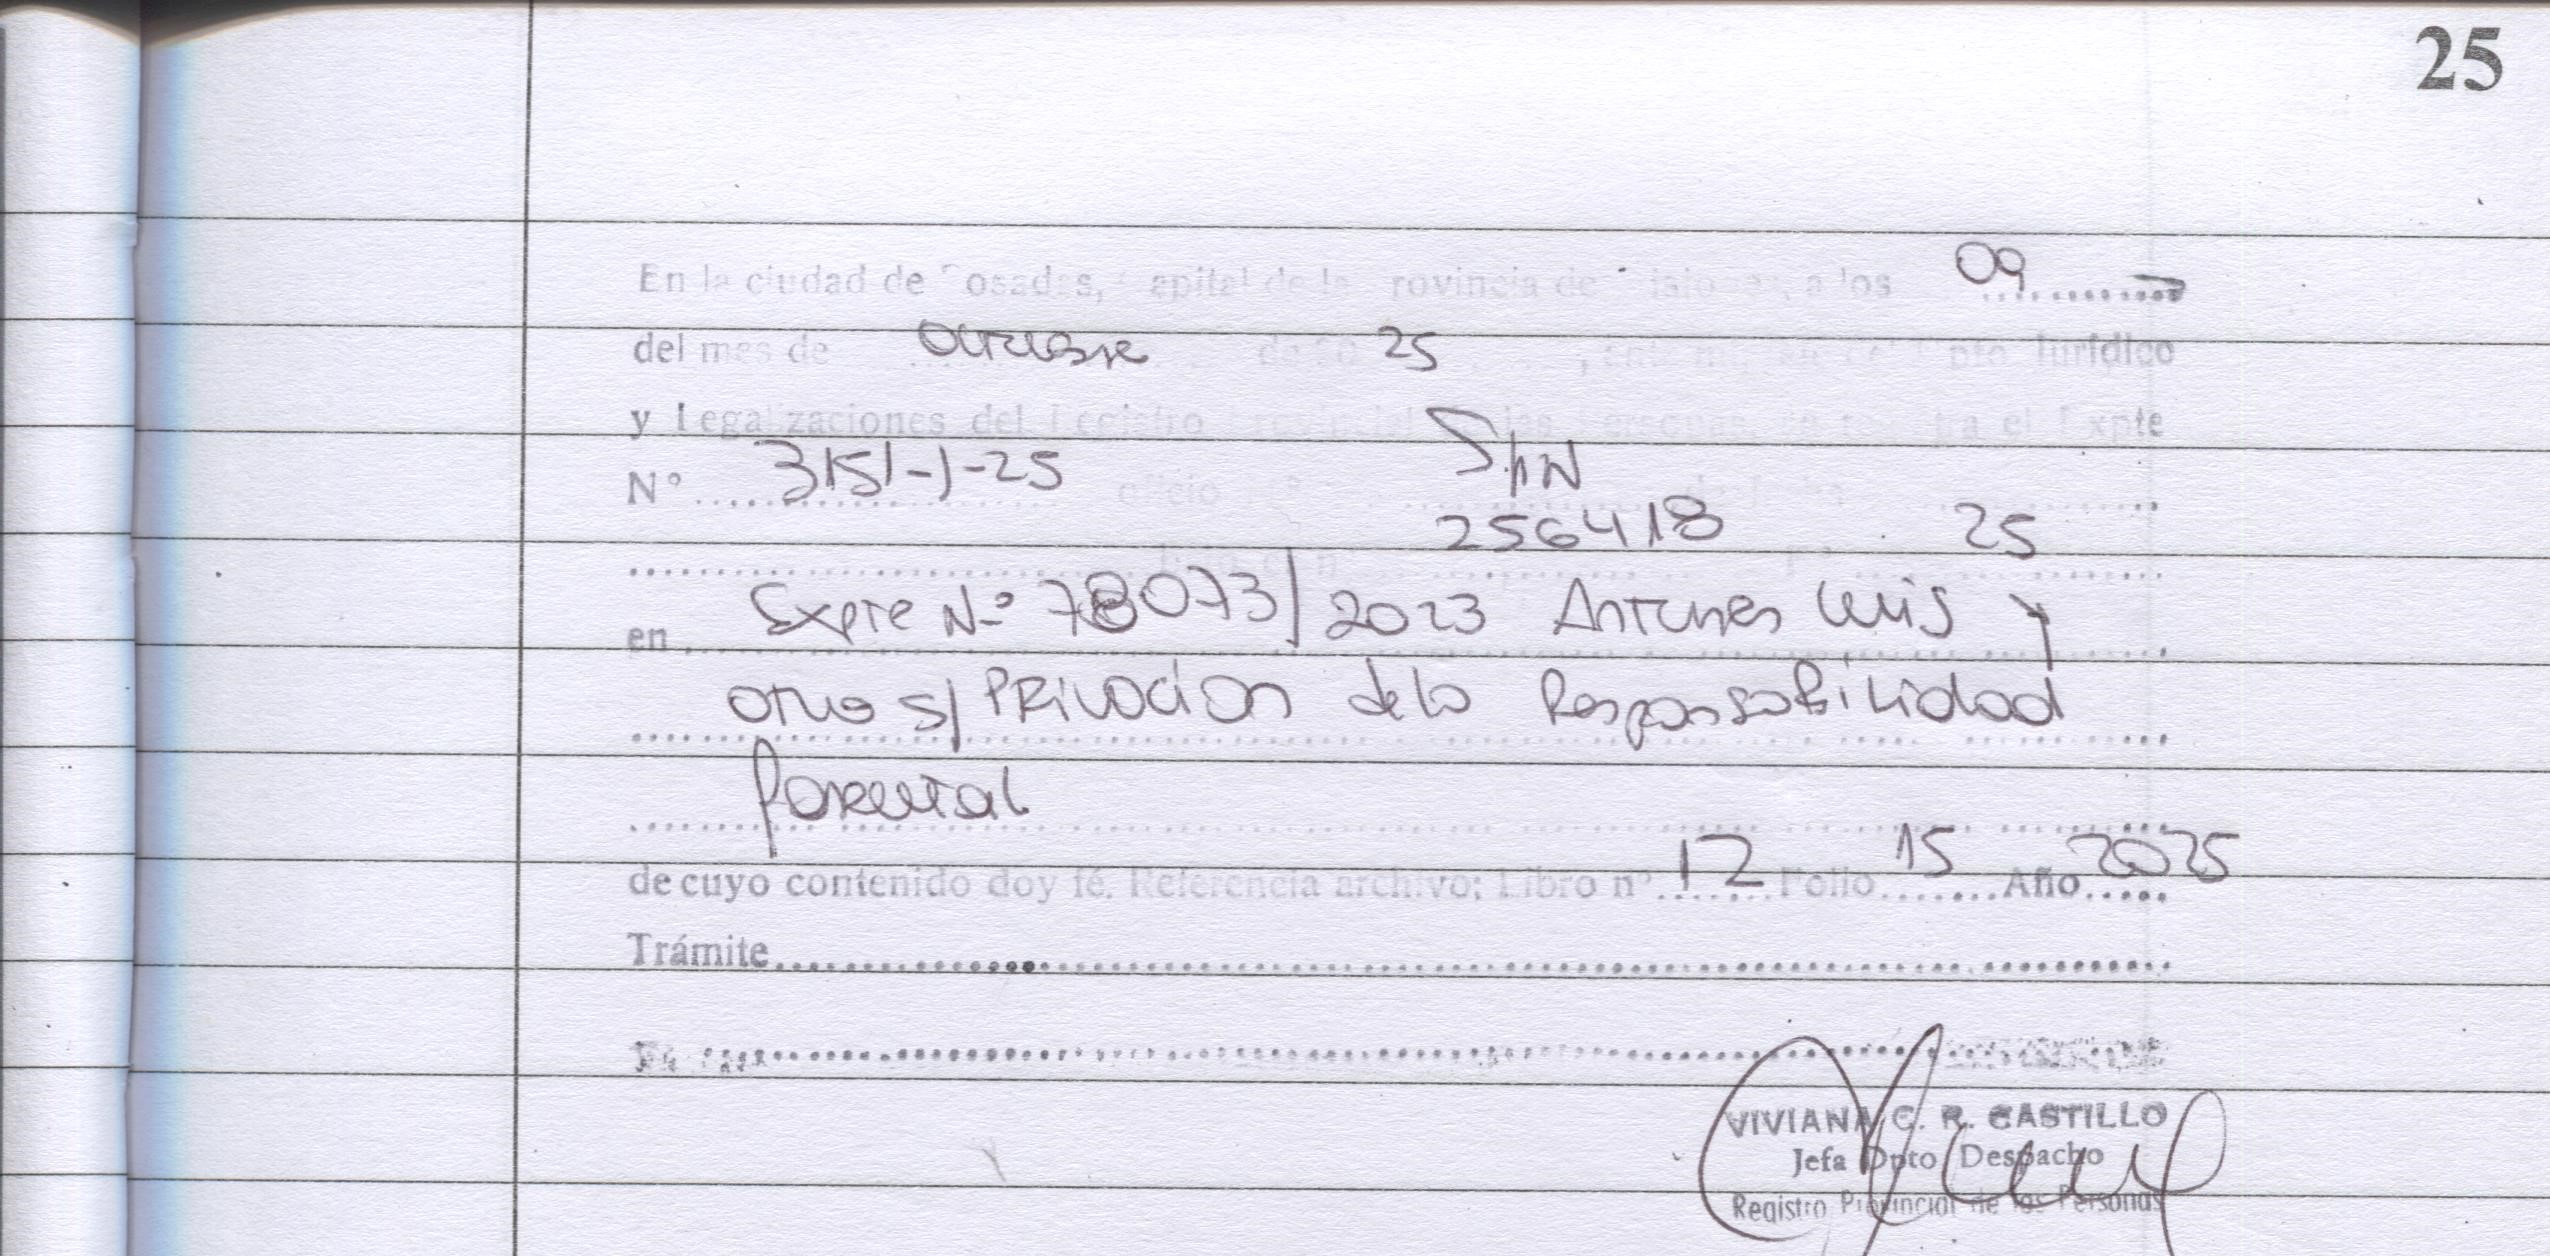 25
En la ciudad de Posadas, Capital de la Provincia de Misiones, a los 09
del mes de octubre de 20 25, Dpto Jurídico
y Legalizaciones del Registro Provincial de las Personas, el Expte
N° 3151-J-25 oficio S/N
256418 25
en Expte N° 78073/2023 Antunes Luis y
otro s/ PRIVACION de la Responsabilidad
Parental
de cuyo contenido doy fé. Referencia archivo: Libro n° 12 Folio 15 Año 2025
Trámite
VIVIANA C. R. CASTILLO
Jefa Dpto Despacho
Registro Provincial de las Personas